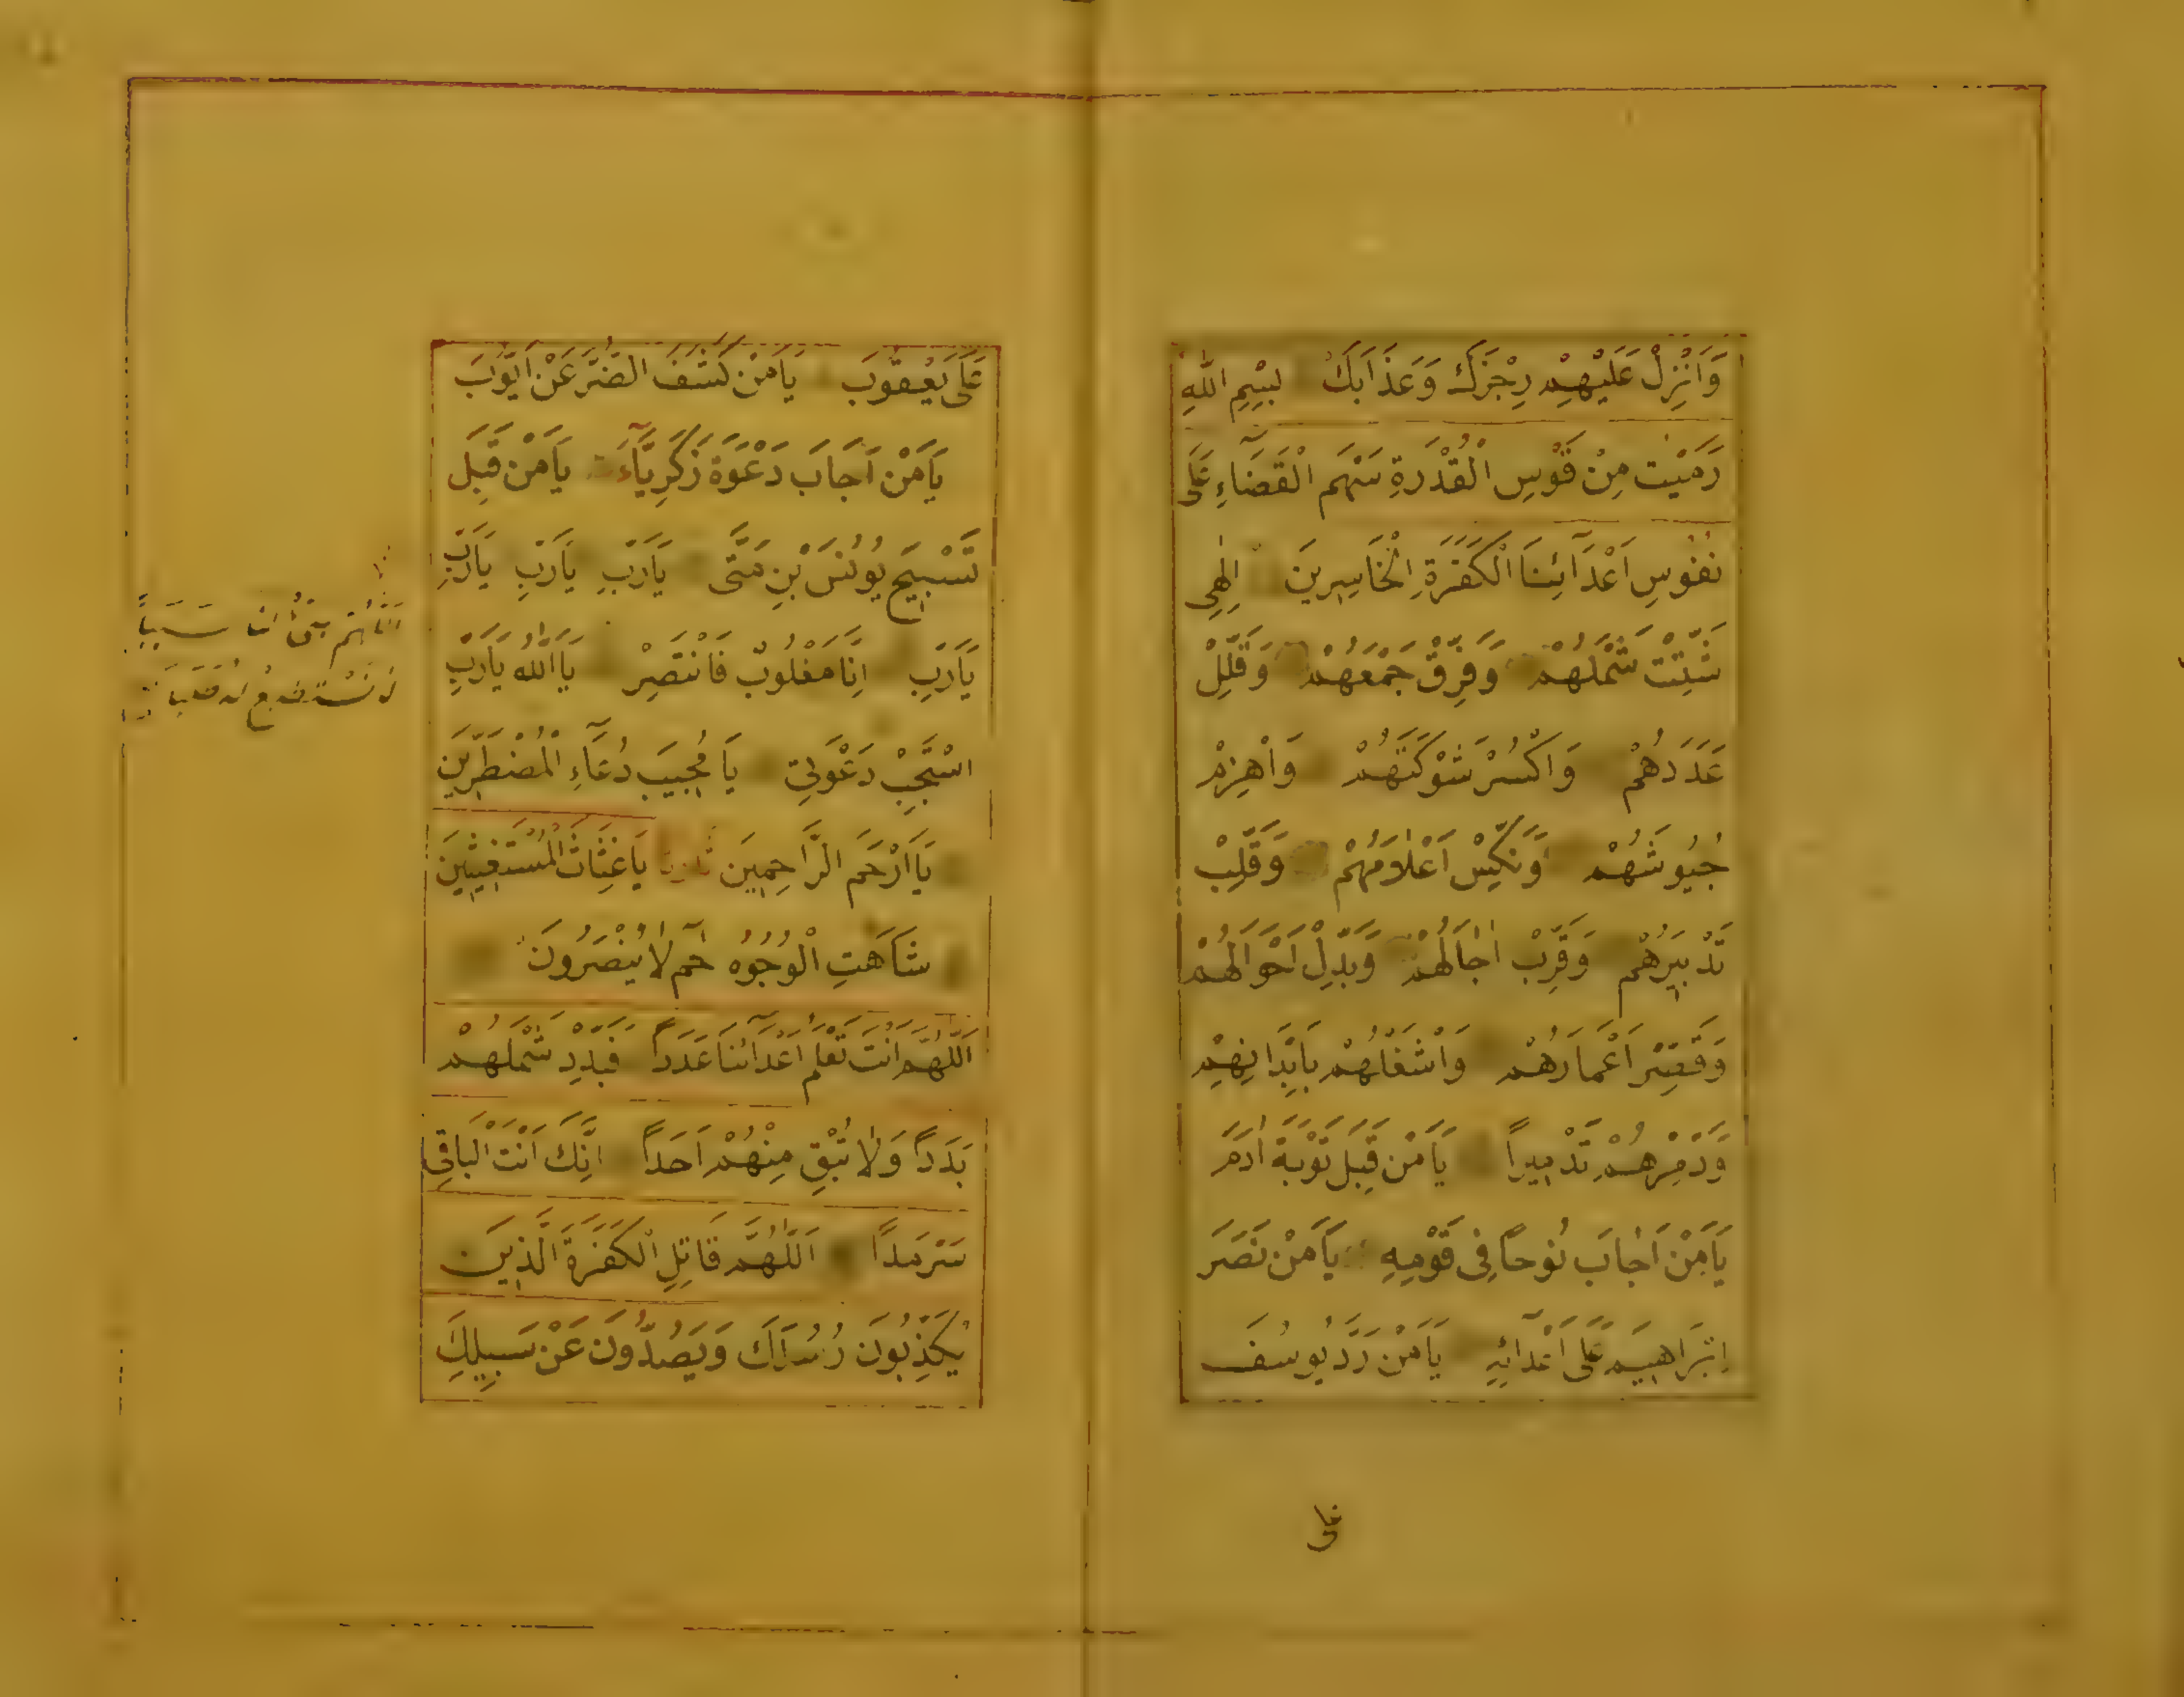 وَاَنْزِلْ عَلَيْهِمْ رِجْزَكَ وَعَذَابَكَ بِسْمِ اللّٰهِ
رَمَيْتُ مِنْ قَوْسِ الْقُدْرَةِ سَهْمَ الْقَضَآءِ عَلٰى
نُفُوسِ اَعْدَآئِنَا الْكَفَرَةِ الْخَاسِرِينَ اِلٰهِى
شَتِّتْ شَمْلَهُمْ وَفَرِّقْ جَمْعَهُمْ وَقَلِّلْ
عَدَدَهُمْ وَاكْسُرْ شَوْكَتَهُمْ وَاهْزِمْ
جُيُوشَهُمْ وَنَكِّسْ اَعْلَامَهُمْ وَقَلِّبْ
تَدْبِيرَهُمْ وَقَرِّبْ اٰجَالَهُمْ وَبَدِّلْ اَحْوَالَهُمْ
وَقَصِّرْ اَعْمَارَهُمْ وَاشْغَلْهُمْ بِاَبْدَانِهِمْ
وَدَمِّرْهُمْ تَدْمِيرًا يَا مَنْ قَبِلَ تَوْبَةَ اٰدَمَ
يَا مَنْ اَجَابَ نُوحًا فِى قَوْمِهِ يَا مَنْ نَصَرَ
اِبْرَاهِيمَ عَلٰى اَعْدَآئِهِ يَا مَنْ رَدَّ يُوسُفَ
على
عَلٰى يَعْقُوبَ يَا مَنْ كَشَفَ الضُّرَّ عَنْ اَيُّوبَ
يَا مَنْ اَجَابَ دَعْوَةَ زَكَرِيَّآءَ يَا مَنْ قَبِلَ
تَسْبِيحَ يُونُسَ بْنِ مَتّٰى يَارَبِّ يَارَبِّ يَارَبِّ
يَارَبِّ اِنِّى مَغْلُوبٌ فَانْتَصِرْ يَا اَللّٰهُ يَارَبِّ
اسْتَجِبْ دَعْوَتِى يَا مُجِيبَ دُعَآءِ الْمُضْطَرِّينَ
يَا اَرْحَمَ الرَّاحِمِينَ يَا غِيَاثَ الْمُسْتَغِيثِينَ
شَاهَتِ الْوُجُوهُ حٰمٓ لَا يُنْصَرُونَ
اَللّٰهُمَّ اَنْتَ تَعْلَمُ اَعْدَآئَنَا عَدَدًا فَبَدِّدْ شَمْلَهُمْ
بَدَدًا وَلَا تُبْقِ مِنْهُمْ اَحَدًا اِنَّكَ اَنْتَ الْبَاقِى
سَرْمَدًا اَللّٰهُمَّ قَاتِلِ الْكَفَرَةَ الَّذِينَ
يُكَذِّبُونَ رُسُلَكَ وَيَصُدُّونَ عَنْ سَبِيلِكَ